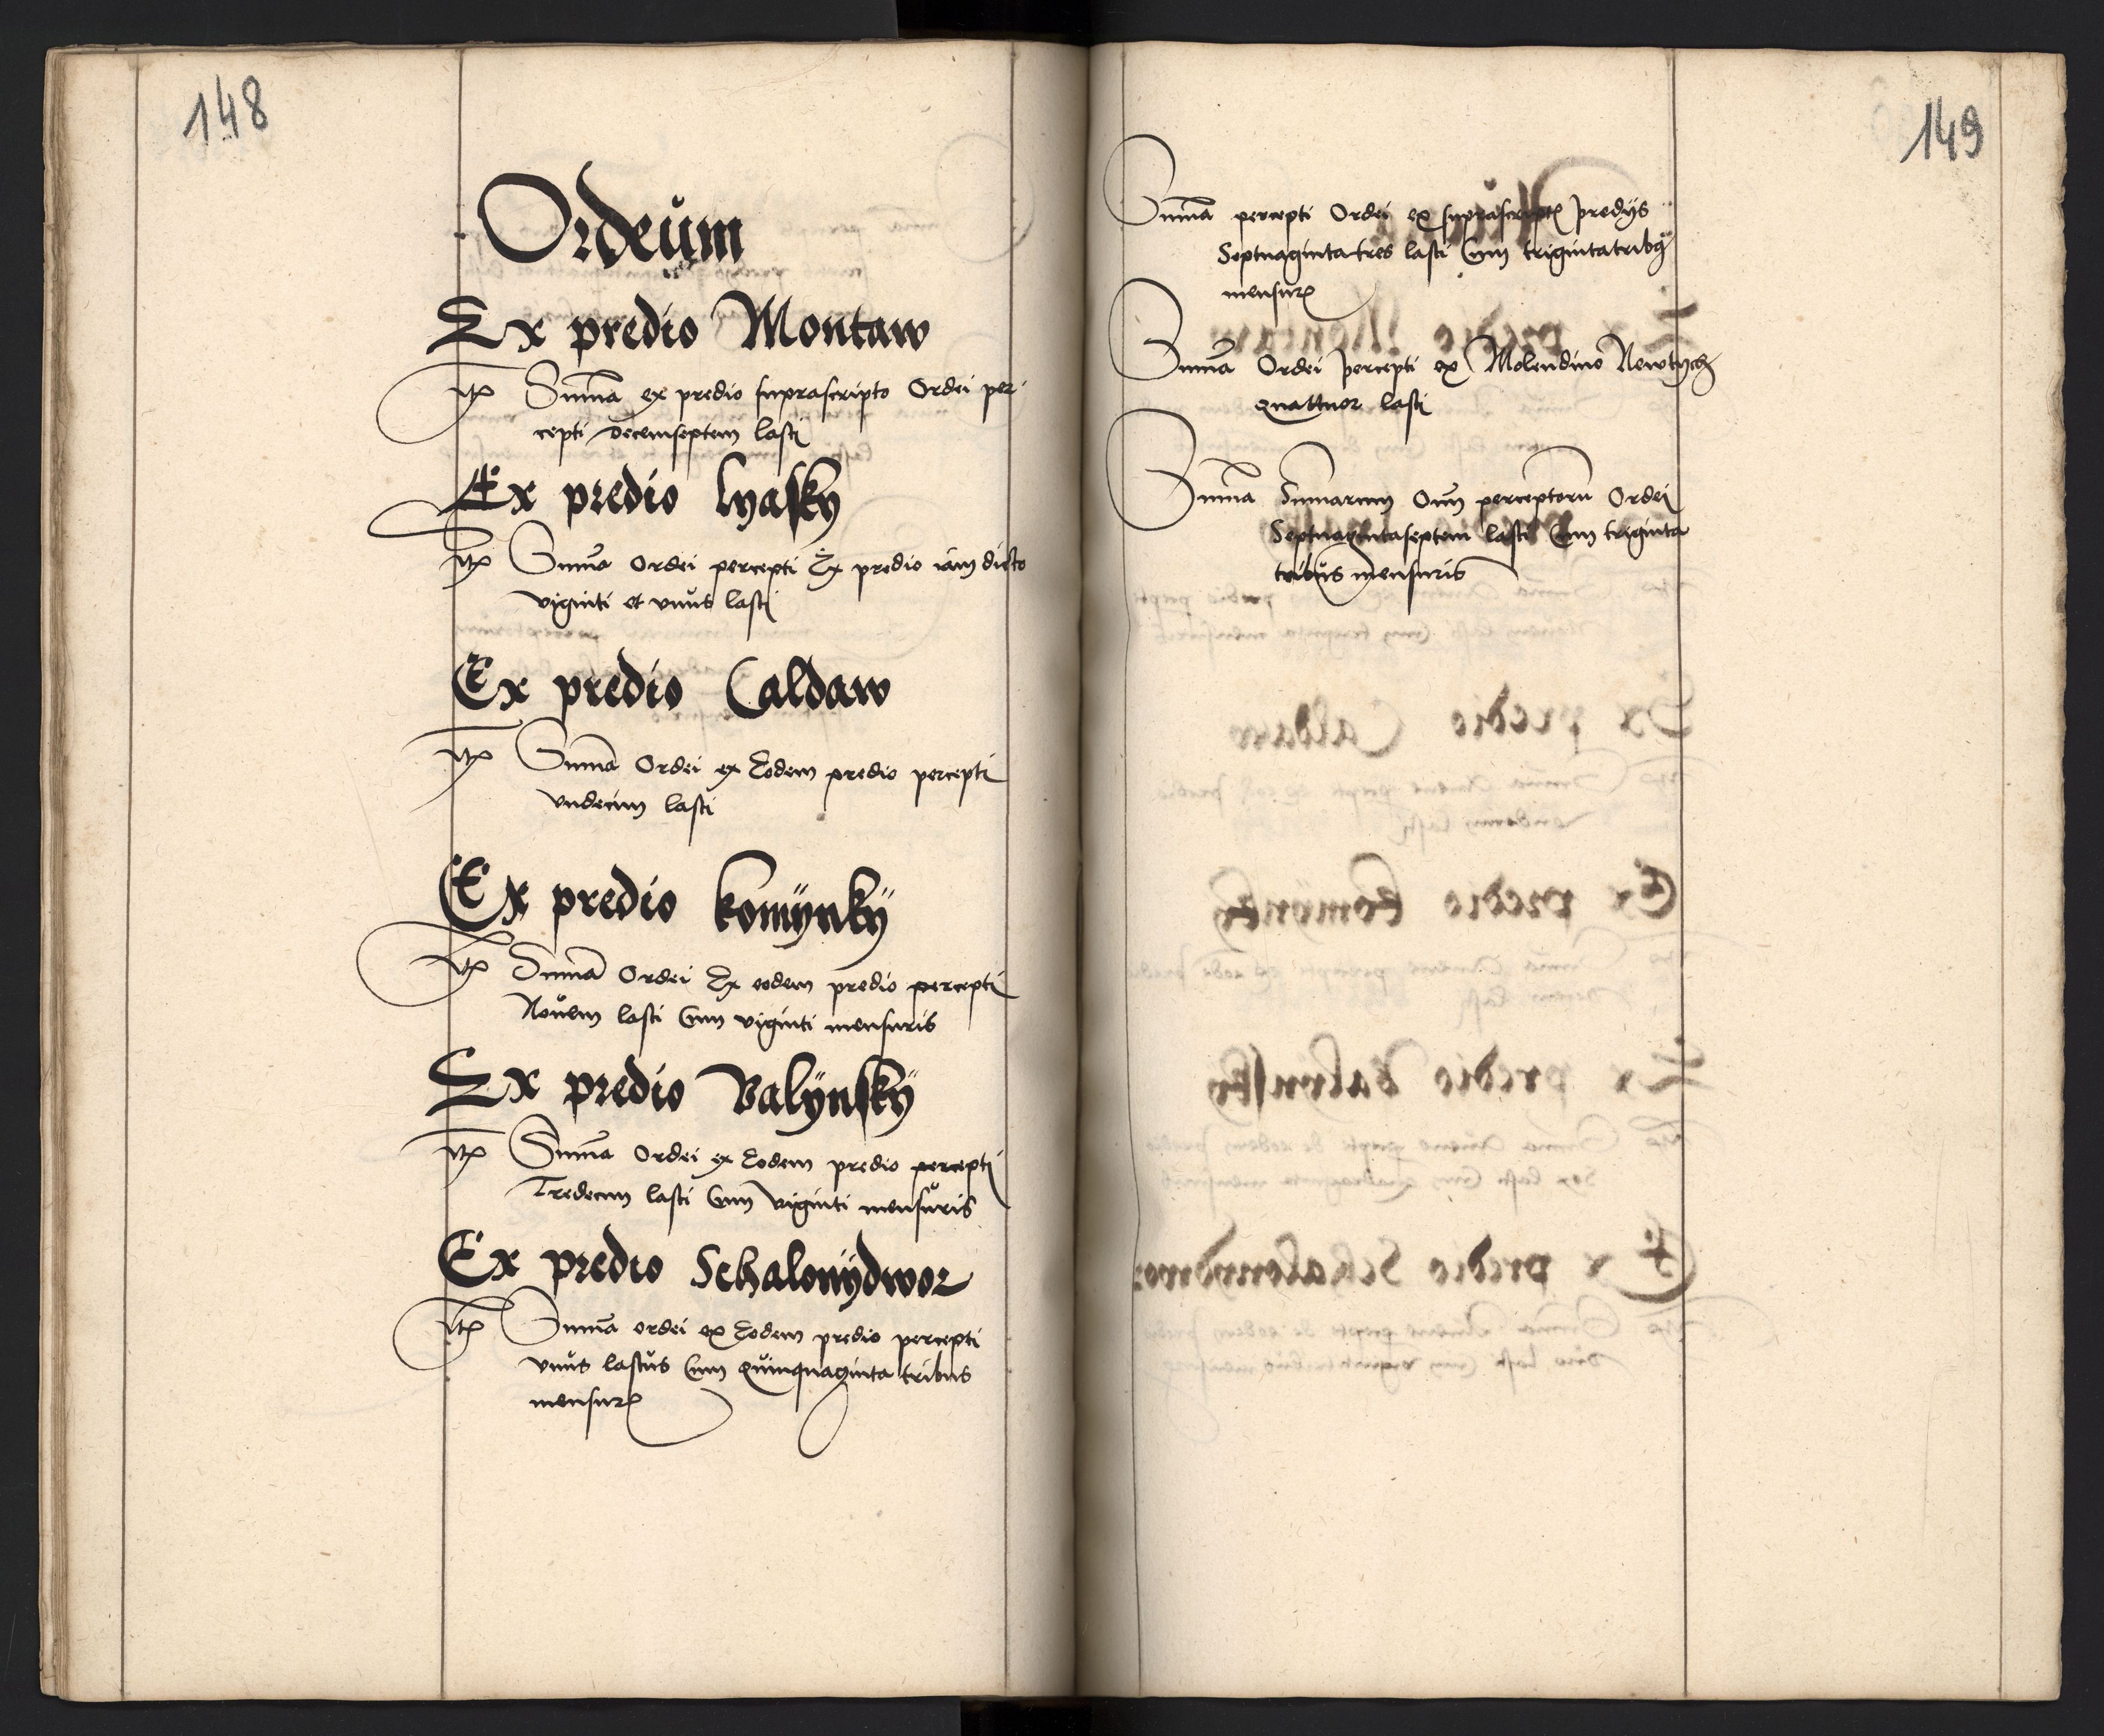 148
Ordeum
Ex predio Montaw
Itꝫ Summa ex predio suprascripto Ordei per
cepti decemseptem lasti
Ex predio lyasky
Itꝫ Summa Ordei percepti Ex predio iam dicto
viginti et vnus lasti
Ex predio Caldaw
Itꝫ Summa Ordei ex Eodem predio percepti
vndecim lasti
Ex predio komÿnkÿ
Itꝫ Summa Ordei Ex eodem predio percepti
Nouem lasti Cum viginti mensuris
Ex predio Balÿnskÿ
Itꝫ Summa Ordei ex Eodem predio percepti
Tredecim lasti Cum viginti mensuris
Ex predio Schalonÿdwor
Itꝫ Summa ordei ex Eodem predio percepti
vnus lastus Cum quinquaginta tribus
mensurꝭ
149
Summa percepti Ordei ex suprascriptꝭ predÿs
Septuagintatres lasti Cum trigintatribꝫ
mensurꝭ
Summa Ordei percepti ex Molendino Newtych
quattuor lasti
Summa Summarum Oim perceptorum Ordei
Septuagintaseptem lasti Cum triginta
tribus mensuris